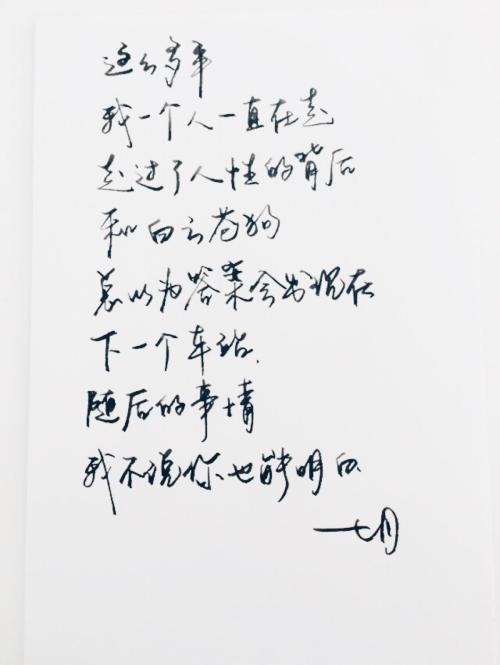 这么多年
我一个人一直在走
走过了人性的背后
和白云苍狗
总以为答案会出现在
下一个车站.
随后的事情
我不说你也能明白.
——七月